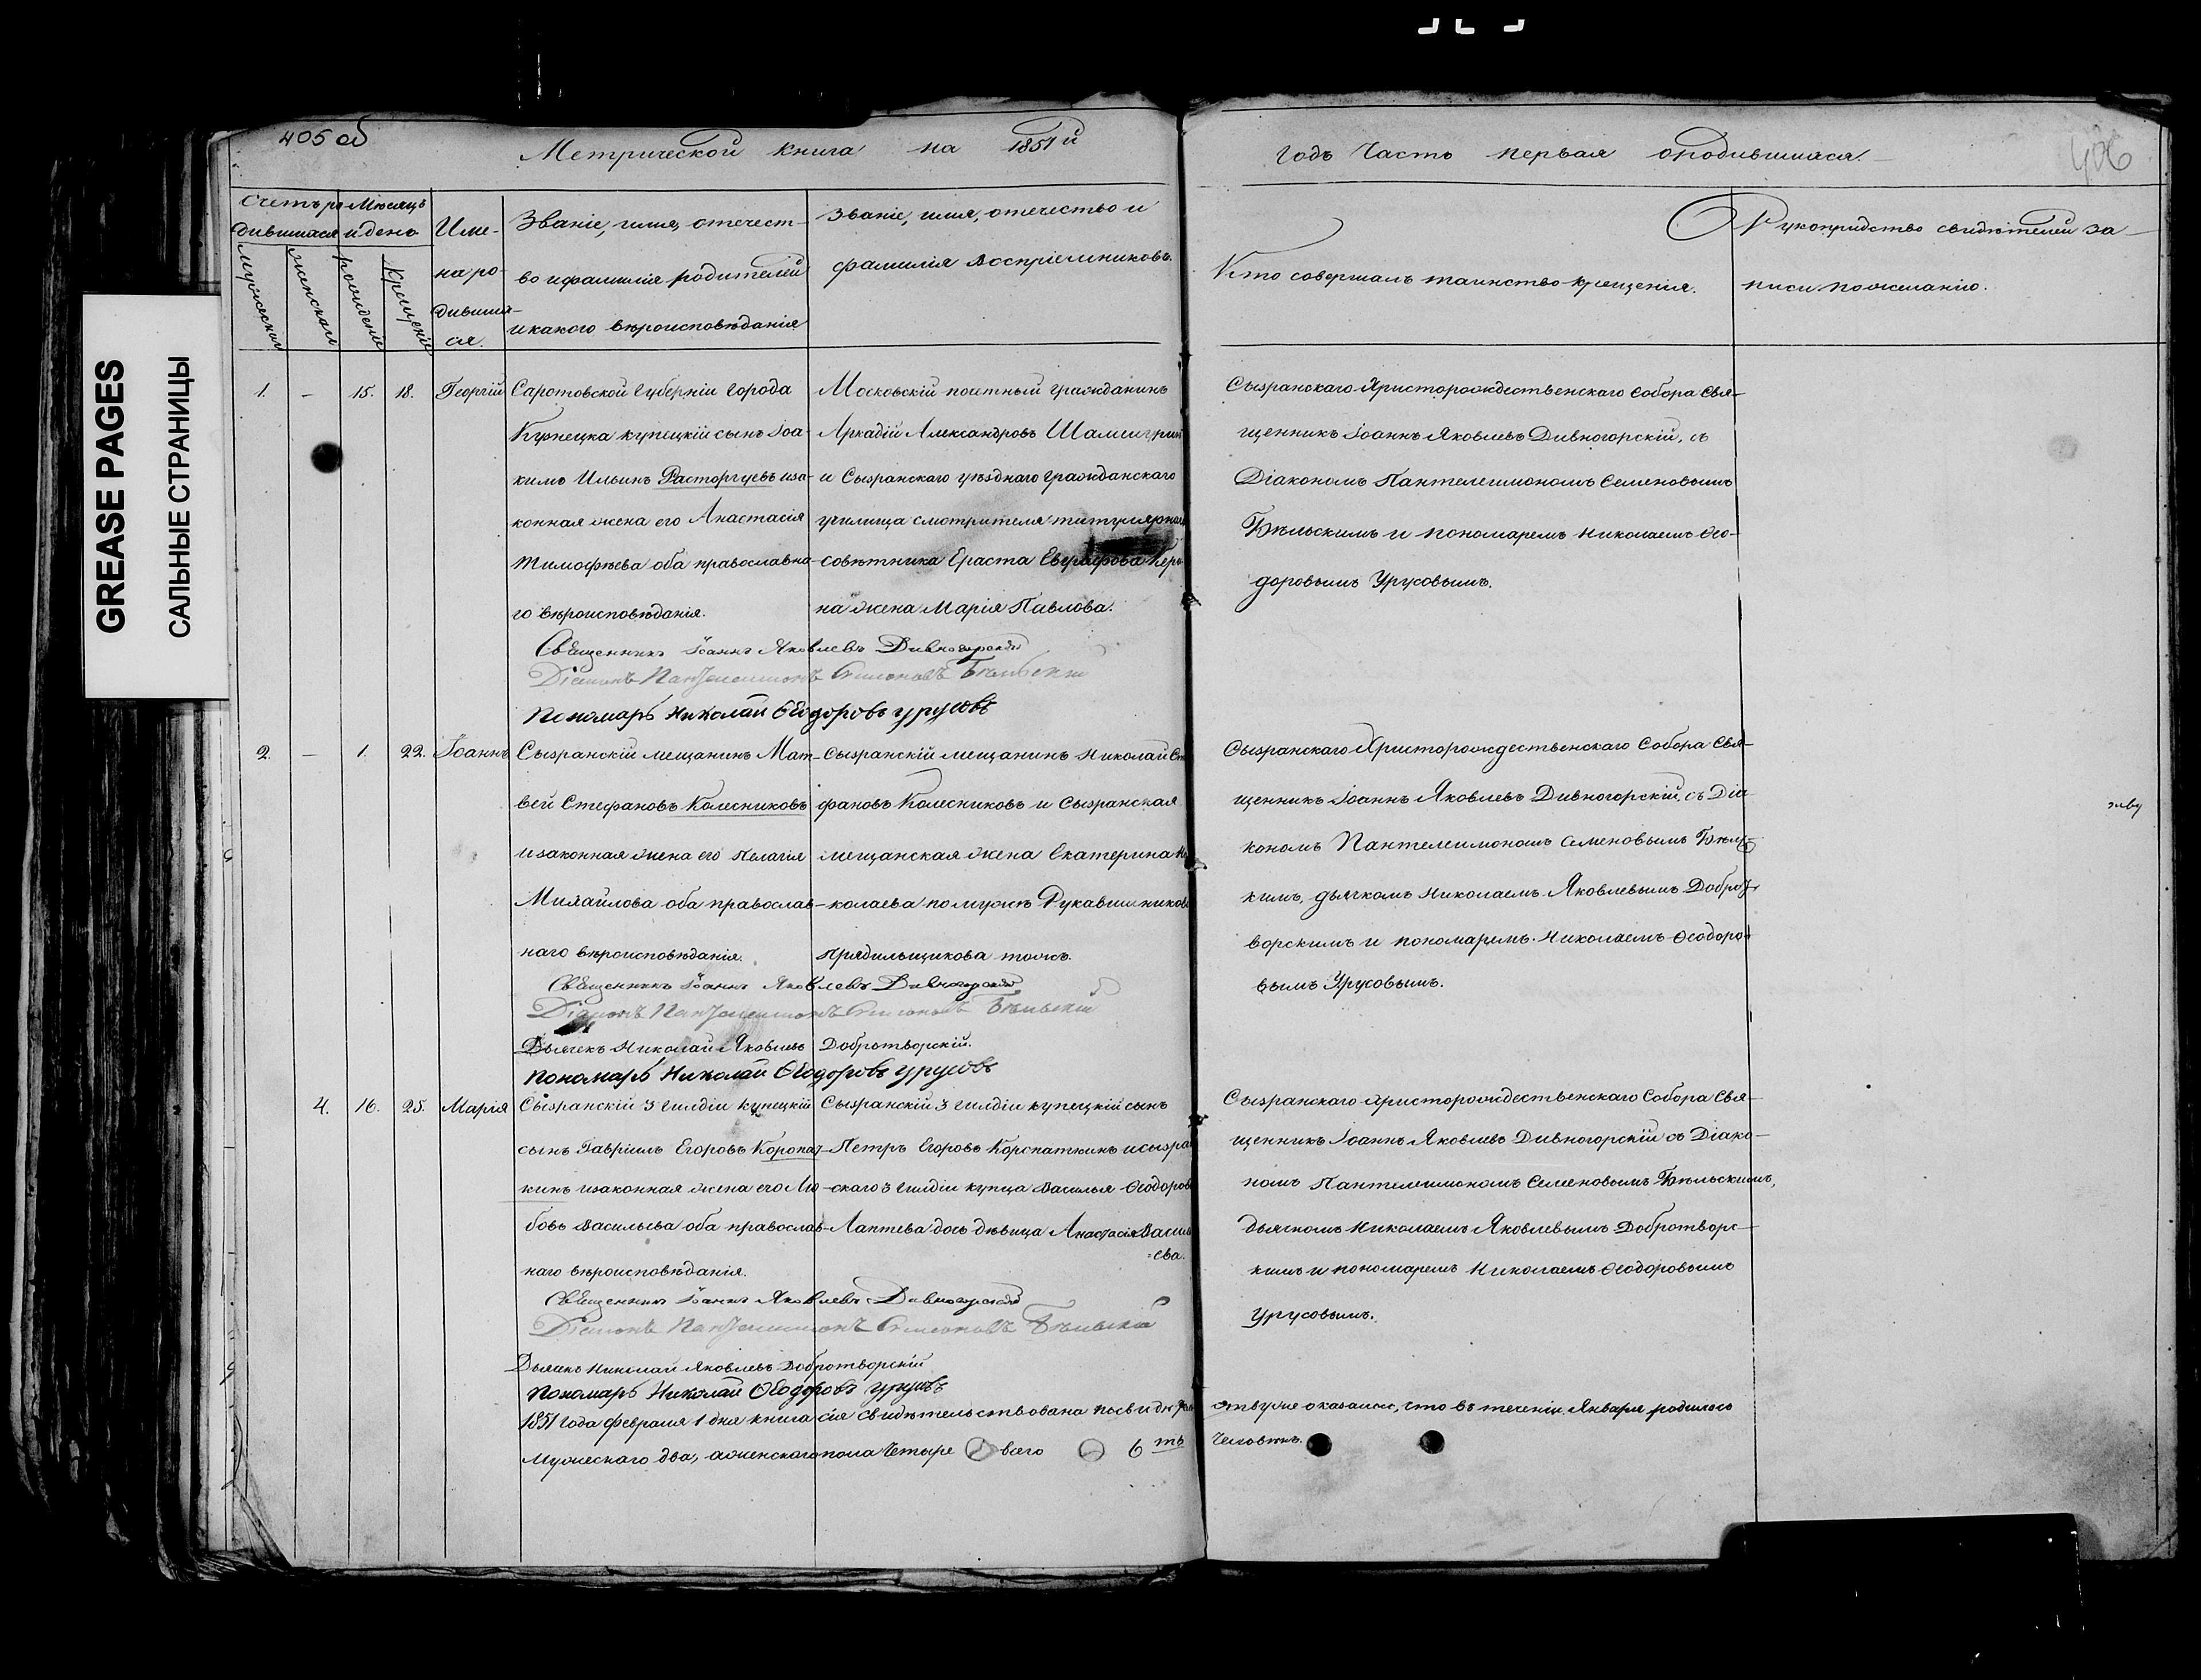 405 об
Метрической книга на 1851й
годъ Часть первая ородившихся.
406
GREASE PAGES
САЛЬНЫЕ СТРАНИЦЫ
Счетъ ро-
дившихся
Мѣсяцъ
и день
мужескаго
женскаго
рожденiя
Крещенiя
Име-
на ро-
дивших-
ся.
Званiе, имя, отечест-
во и фамилiя родителей
и какого вѣроисповѣданiя
Званiе, имя, отечество и
фамилiя Воспрiемниковъ.
Кто совершалъ таинство крещенiя.
Рукоприкдство свидѣтелей за-
писи по желанiю.
1. – 15. 18. Георгiй
Саротовской Губернiи города
Кузнецка купецкiй сынъ Iоа-
кимъ Ильинъ Расторгуевъ иза-
конная жена его Анастасiя
Тимофѣева оба православна-
го вѣроисповѣданiя.
Московскiй почетный гражданинъ
Аркадiй Александровъ
и Сызранскаго уѣзднаго гражданскаго
училища смотрителя титулярнаго
совѣтника Ераста Евграфова
на жена Марiя Павлова.
Сызранскаго Христорождественскаго Собора Свя-
щенникъ Iоаннъ Яковлевъ Дивногорскiй, съ
Дiакономъ Пантелеимономъ Семеновымъ
Бѣльскимъ и пономаремъ Николаемъ Ѳео-
доровымъ Урусовымъ.
Священникъ Iоаннъ Яковлевъ Дивногорскiй
Дiаконъ Пантелеимонъ Симеоновъ Бѣльскiй
Пономарь Николай Ѳеодоровъ Урусовъ
2. – 1. 22. Iоаннъ
Сызранскiй мещанинъ Мат-
вей Стефановъ Колесниковъ
изаконная жена его Пелагiя
Михайлова оба православ-
наго вѣроисповѣданiя.
Сызранскiй мещанинъ Николай Сте
фановъ Колесниковъ и Сызранская
мещанская жена Екатерина Ни
колаева по мужѣ Рукавишникова
Прядильщикова тожъ.
Сызранскаго Христорождественскаго Собора Свя-
щенникъ Iоаннъ Яковлевъ Дивногорскiй, съ Дiа
кономъ Пантелеимономъ Семеновымъ Бѣльс
кимъ, дьячкомъ Николаемъ Яковлевымъ Доброт
ворскимъ и пономаремъ Николаемъ Ѳеодоро
вымъ Урусовымъ.
Священникъ Iоаннъ Яковлевъ Дивногорскiй
Дiаконъ Пантелеимонъ Симеоновъ Бѣльскiй
Дьячекъ Николай Яковлевъ Добротворскiй.
Пономарь Николай Ѳеодоровъ Урусовъ
4. 16. 25. Марiя
Сызранскiй 3 гилдiи купецкiй
сынъ Гаврiилъ Егоровъ Коропат-
кинъ изаконная жена его Лю-
бовь Васильева оба православ-
наго вѣроисповѣданiя.
Сызранскiй 3 гилдiи купецкiй сынъ
Петръ Егоровъ Коропаткинъ и сызран
скаго 3 гилдiи купца Василья Ѳеодорова
Лаптева дочь дѣвица Анастасiя Василь
=ева.
Сызранскаго Христорождественскаго Собора Свя-
щенникъ Iоаннъ Яковлевъ Дивногорскiй съ Дiако-
номъ Пантелеимономъ Семеновымъ Бѣльскимъ,
дьячкомъ Николаемъ Яковлевымъ Добротворс-
кимъ и пономаремъ Николаемъ Ѳеодоровымъ
Урусовымъ.
Священникъ Iоаннъ Яковлевъ Дивногорскiй
Дiаконъ Пантелеимонъ Симеоновъ Бѣльскiй
Дьячекъ Николай Яковлевъ Добротворскiй
Пономарь Николай Ѳеодоровъ Урусовъ
1851 года февраля 1 дня книга сiя свидѣтельствована оказалось, что въ теченiи Января родилось
Мужескаго два, аженскаго пола Четыре всего 6 ть Человѣкъ.